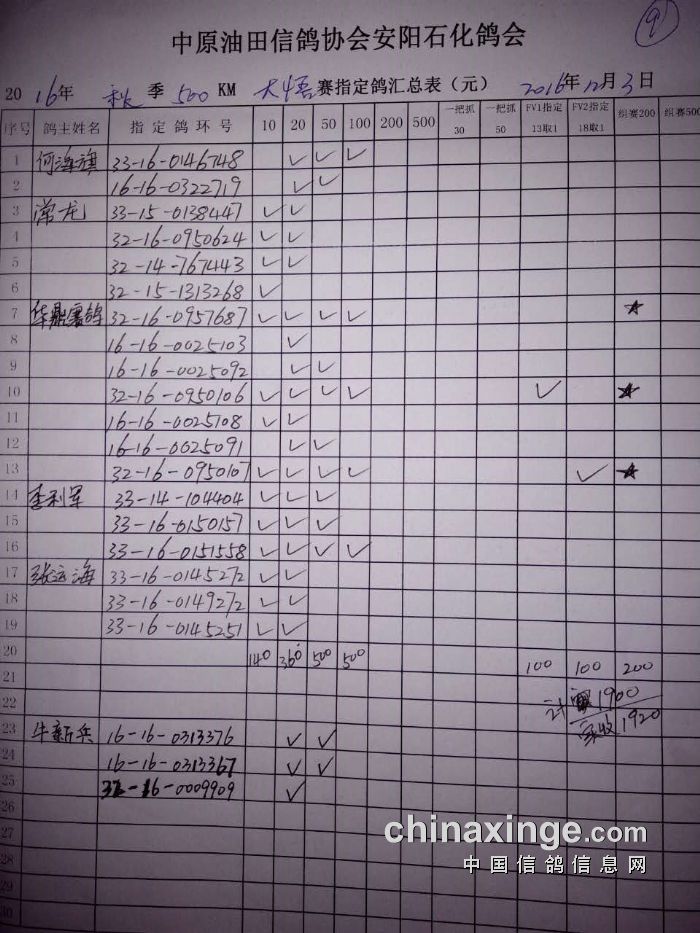 9
中原油田信鸽协会安阳石化鸽会
2016年 秋 季 500 KM 大悟 赛指定鸽汇总表（元） 2016年12月3日
序号 鸽主姓名 指定鸽环号 10 20 50 100 200 500 一把抓30 一把抓50 FV1指定13取1 FV2指定18取1 组赛200 组赛500
1 何海旗 33-16-0146748 ✓ ✓ ✓
2 16-16-0322719 ✓ ✓
3 常龙 33-15-0138447 ✓ ✓
4 32-16-0950624 ✓ ✓
5 32-14-767443 ✓ ✓
6 32-15-1313268 ✓
7 华鼎赛鸽 32-16-0957687 ✓ ✓ ✓ ✓ ★
8 16-16-0025103 ✓
9 16-16-0025092 ✓ ✓
10 32-16-0950106 ✓ ✓ ✓ ✓ ✓ ★
11 16-16-0025108 ✓ ✓
12 16-16-0025091 ✓ ✓
13 32-16-0950107 ✓ ✓ ✓ ✓ ✓ ★
14 李利军 33-14-104404 ✓ ✓ ✓
15 33-16-0150157 ✓ ✓ ✓
16 33-16-0151558 ✓ ✓ ✓ ✓
17 张运海 33-16-0145272 ✓ ✓
18 33-16-0149272 ✓ ✓
19 33-16-0145251 ✓ ✓
20 140 360 500 500 100 100 200
21
22 计 1900
实收 1920
23 牛新兵 16-16-0313376 ✓ ✓
24 16-16-0313367 ✓ ✓
25 16-0009909 ✓
26
27
28
29
30
chinaxinge.com
中国信鸽信息网